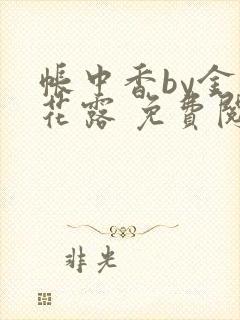 帳中香by金
花露 免費閱
非光